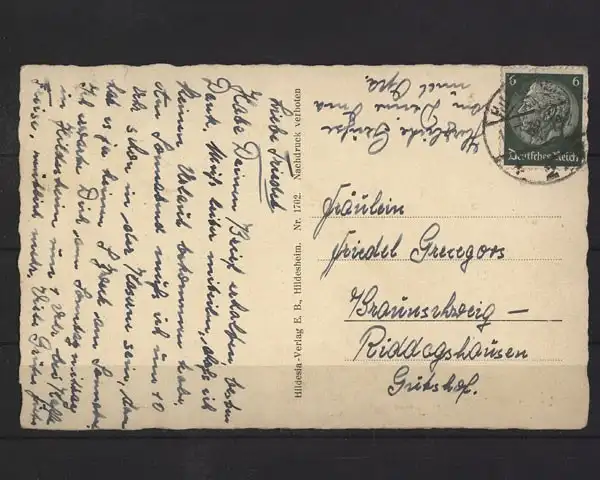 Liebe Friedel
Habe Deinen Brief erhalten, besten
Dank. Muß leider mitteilen, daß ich
keinen Urlaub bekommen habe.
Am Sonnabend muß ich um 10
Uhr schon in der Kaserne sein, denn
hab es ja keinen Zweck am Sonnabend
Ich erwarte Dich am Sonntag mittag
in Hildesheim um 1 Uhr
mehr. Viele Grüße
Herzliche Grüße
von Deine Oma
und Opa
Hildesia-Verlag E. B., Hildesheim. Nr. 1762. Nachdruck verboten
6 6
Deutsches Reich
Fräulein
Friedel Gregors
Braunschweig —
Riddagshausen
Gutshof.